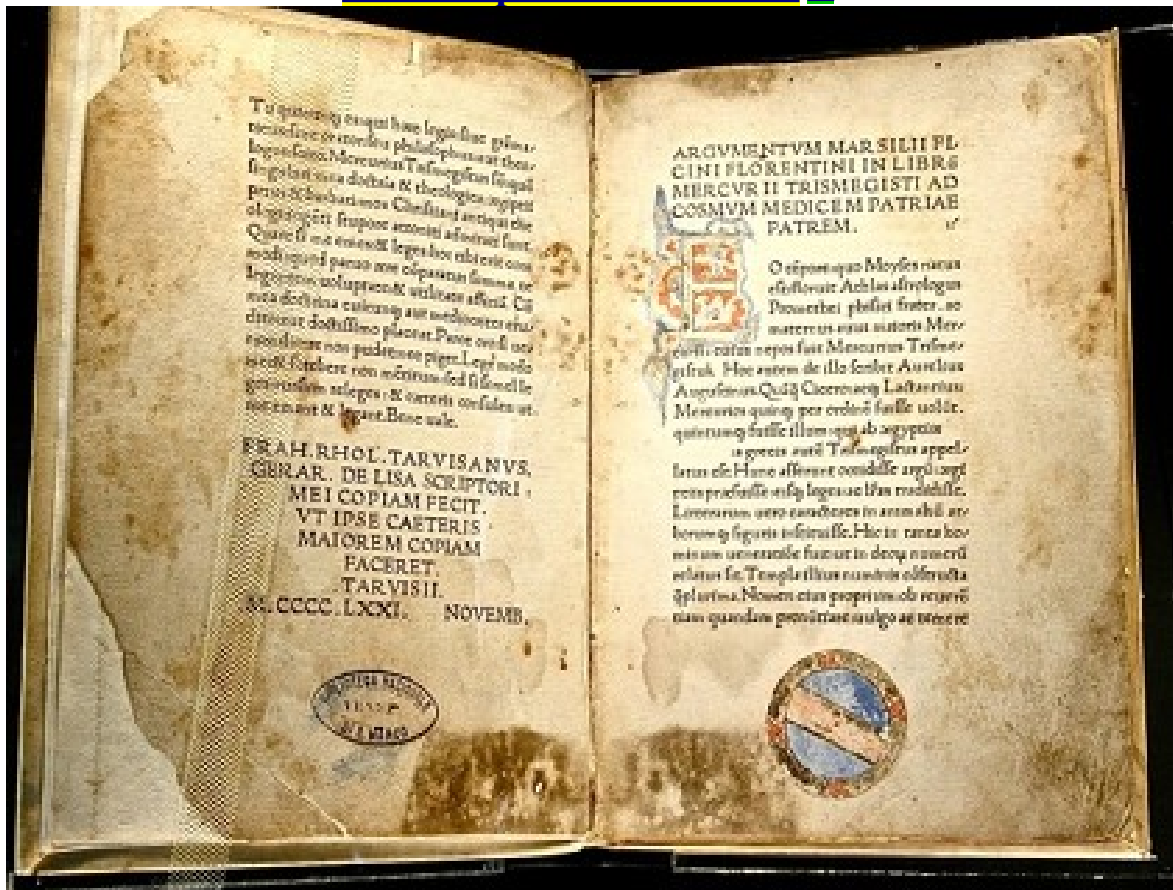 Tu quicunq es qui hæc legis siue gramma-
ticus siue orator seu philosophus aut theo-
logus scito. Mercurius Trismegistus sū quē
singulari mea doctrina & theologica ægyptii
prius & barbari mox Christiani antiqui the-
ologi ingēti stupore attoniti admirati sunt.
Quare si me emes & leges hoc tibi erit com
modi quod paruo ære cōparatus summa te
legentem uoluptate & utilitate afficiā. Cū
mea doctrina cuicunq aut mediocriter eru-
dito aut doctissimo placeat. Parce
non pudet
& cæteris consules ut
me emant & legant. Bene uale.
FRAH. RHOL. TARVISANVS.
GERAR. DE LISA SCRIPTORI.
MEI COPIAM FECIT.
VT IPSE CAETERIS
MAIOREM COPIAM
FACERET.
TARVISII.
M.CCCC.LXXI. NOVEMB.
DE MEXICO
ARGVMENTVM MARSILII FI-
CINI FLORENTINI IN LIBRŌ
MERCVRII TRISMEGISTI AD
COSMVM MEDICEM PATRIAE
PATREM.
E
O tēpore quo Moyses natus
est floruit Athlas astrologus
Promethei phisici frater. ac
maternus auus maioris Mer-
curii cuius nepos fuit Mercurius Trisme-
gistus. Hoc autem de illo scribit Aurelius
Augustinus. Quāq Cicero atq Lactantius
Mercurios quinq per ordinē fuisse uolūt.
quintumq fuisse illum qui ab ægyptiis
a græcis autē Trismegistus appel-
latus est. Hunc asserunt occidisse argū ægy
ptiis præfuisse eisq leges ac lr̄as tradidisse.
Litterarum uero caracteres in animaliū ar-
borumq figuris instituisse. Hic in tanta ho-
minum ueneratiōe fuit ut in deoꝝ numerū
relatus sit. Templa illius numini cōstructa
q̄plurima. Nomen eius proprium ob reuerē
tiam quandam pronūtiare uulgo ac temere